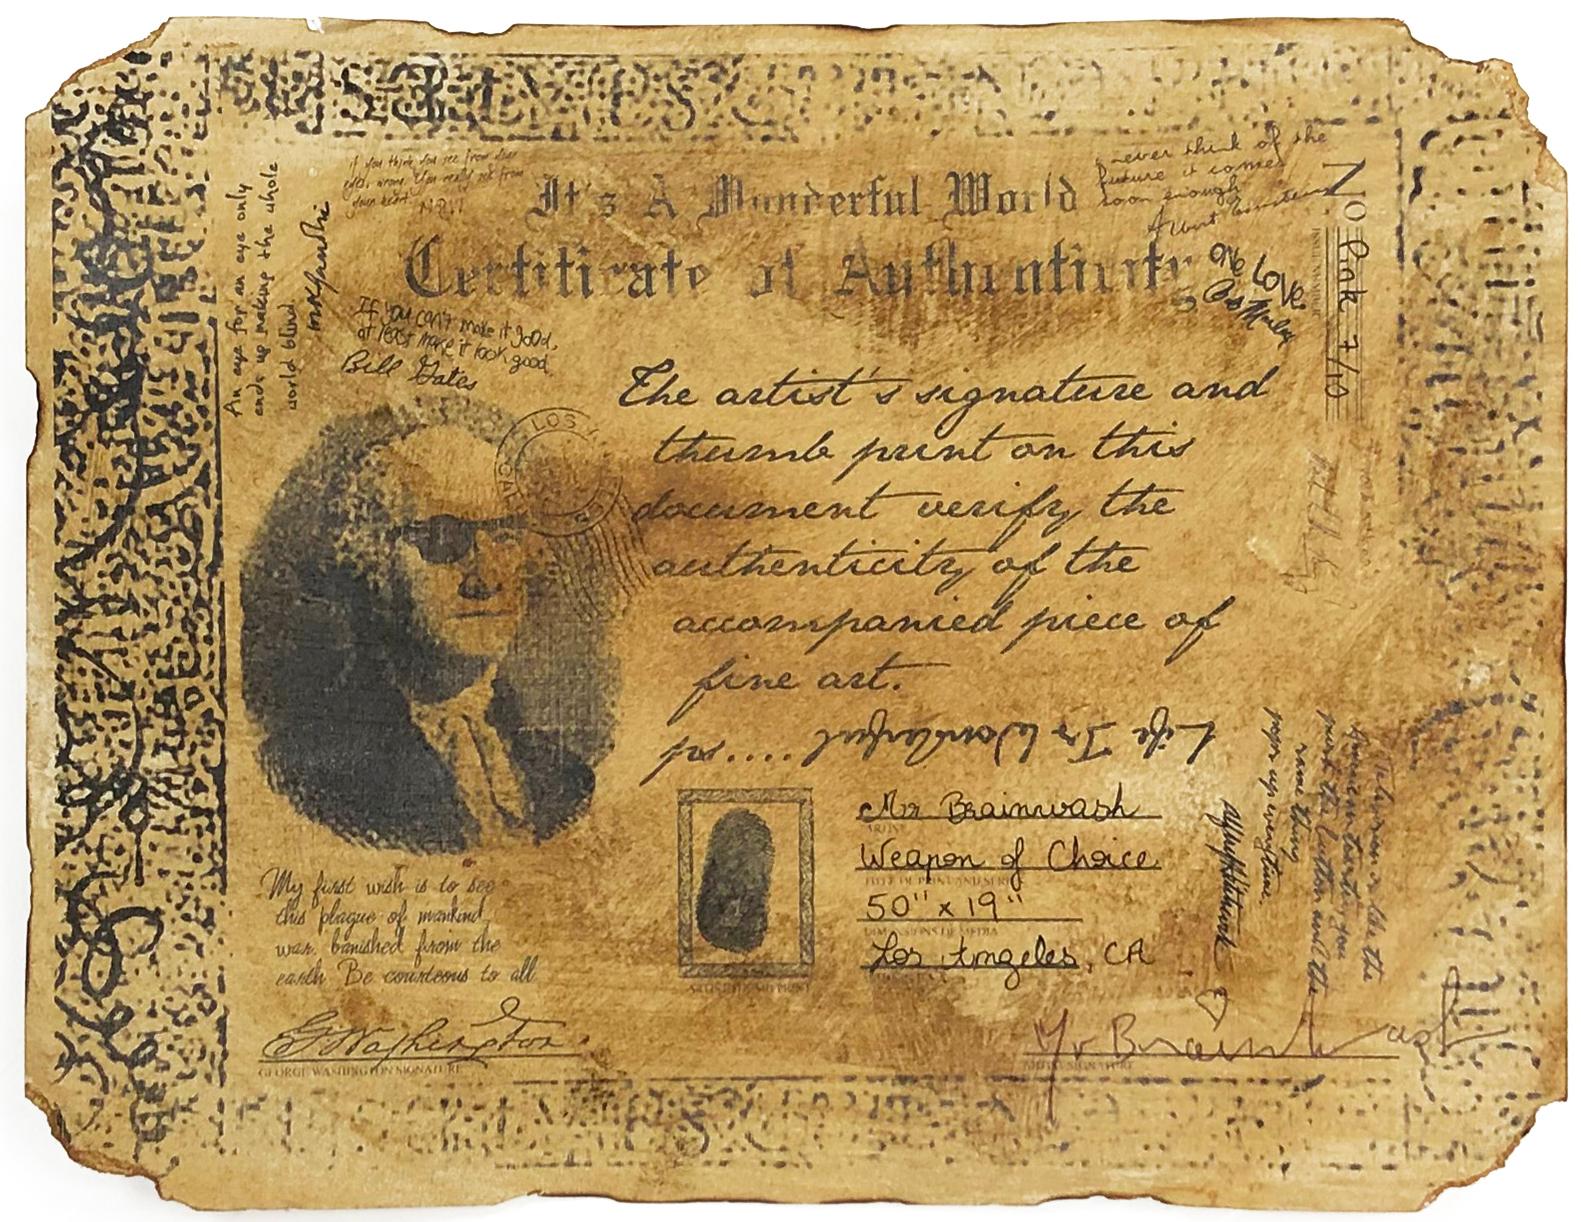 It's A Wonderful World
Certificate of Authenticity
if you think you see from your
eyes, wrong. You really see from
your heart
An eye for an eye only
ends up making the whole
world blind
If you can't make it good,
at least make it look good.
Bill Gates
never think of the
future it comes
soon enough
Albert Einstein
One Love
Bob Marley
No Pink 7/10
LOS
CAL
The artist's signature and
thumb print on this
document verify the
authenticity of the
accompanied piece of
fine art.
ps..... Life Is Wonderful
Mr Brainwash
ARTIST
Weapon of Choice
TITLE OF PRINT AND SERIES
50" x 19"
DIMENSIONS OF MEDIA
Los Angeles, CA
ARTIST THUMB PRINT
My first wish is to see
this plague of mankind,
war, banished from the
earth Be courteous to all
G Washington
GEORGE WASHINGTON SIGNATURE
Mr Brainwash
ARTIST SIGNATURE
push the button and the
same thing
pops up everytime.